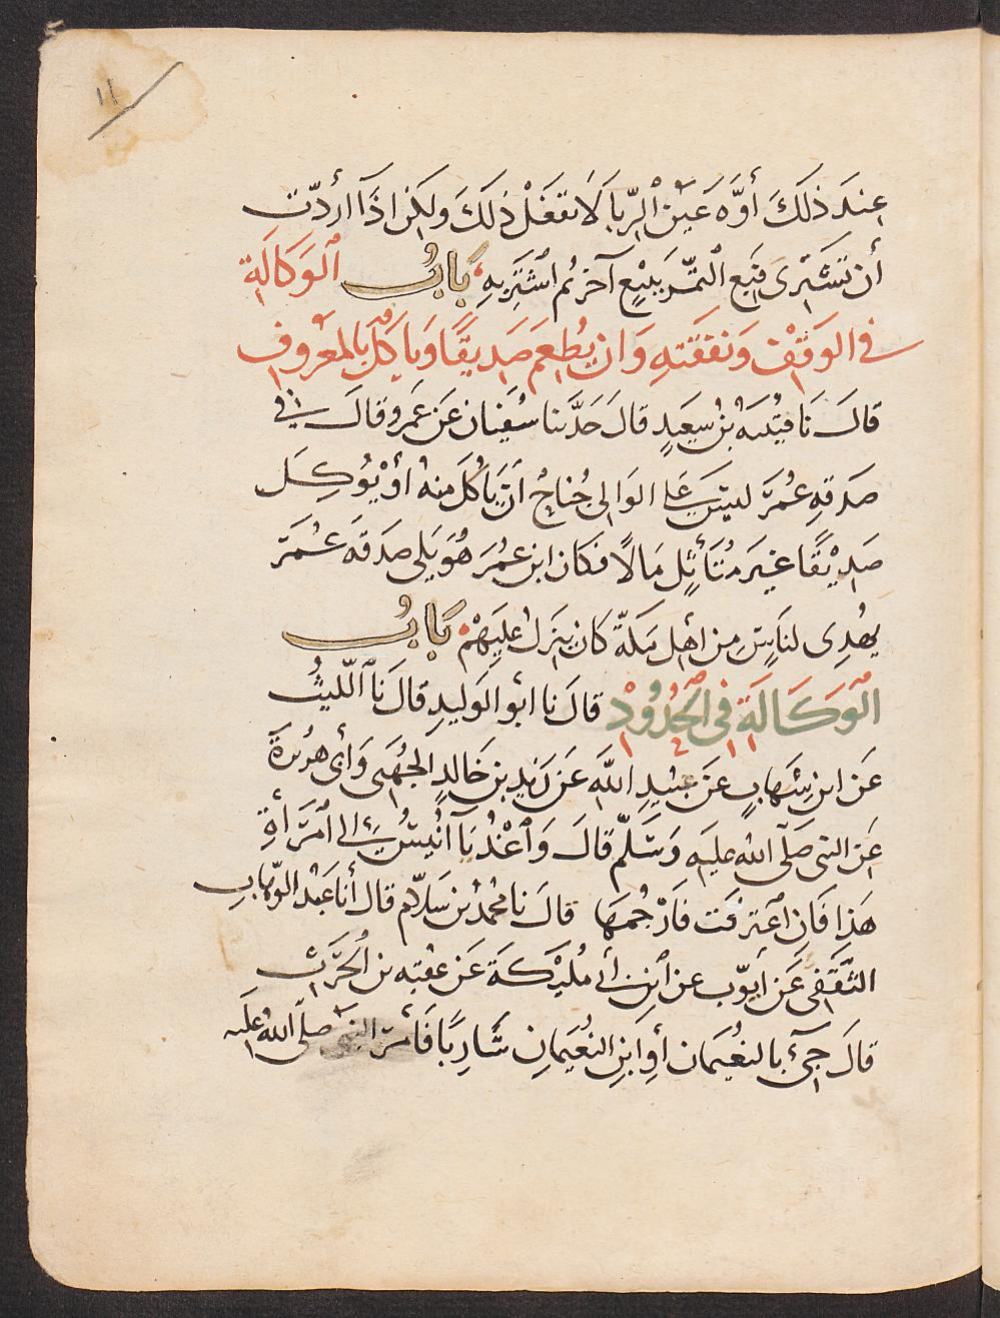 ١١
عِندَ ذَلِكَ أوَّه عَيْن الرِّبا لَا تفعَلْ ذلكَ ولكِن اذَا أردّت
أن تَشتَرى فبَع التمَّر ببَيْعٍ آخر ثم اشتَرِبهِ بَابُ الوَكالَةِ
في الوَقْف وَنفقتهِ وَان يُطعِمَ صَديقًا وَيأكل بالمعروف
قالَ نَا قتيبَه بْنُ سعِيدٍ قالَ حَدَّثنا سُفيَان عَن عَمرو قالَ في
صَدقهِ عُمَر ليسَ عَلى الوَالى جُناحٌ أن يَأكُلَ مِنهُ أوْ يُوكِل
صَدِيْقًا غيرَ مُتأثِّلٍ مَالًا فكان ابن عمُرَ هُوَ يَلى صدقة عُمَرَ
يُهدِى لنَاسٍ مِن اهْلِ مَكّة كان ينزل عليَهْم بَابُ
الوَكَالَةِ فِى الحُدُودْ قالَ نا ابُو الوَليدِ قالَ نَا اللّيثُ
عَن ابن شِهَابٍ عَن عبيْدِ اللّهِ عَن زَيد بن خَالدٍ الجُهَنى وَأبى هرُيرةَ
عَن النبى صَلّى اللهُ عليهِ وَسَلّم قالَ وَاغْدُ يَا أُنيسُ الى امَرأةِ
هَذا فَانِ اعترَفت فَارْجُمهَا قالَ نا محُمدُ بْن سَلاّم قال أنا عَبْدُ الوهّاب
الثَّقَفى عَن ايوّب عن ابْن أبى مُليْكةَ عَن عقبه بن الحَرث
قالَ جِئَ بالنعُيمَان أوِ ابْنِ النعُيَمانِ شَارِبًا فَأمَرَ النبى صَلّى اللهُ عليه